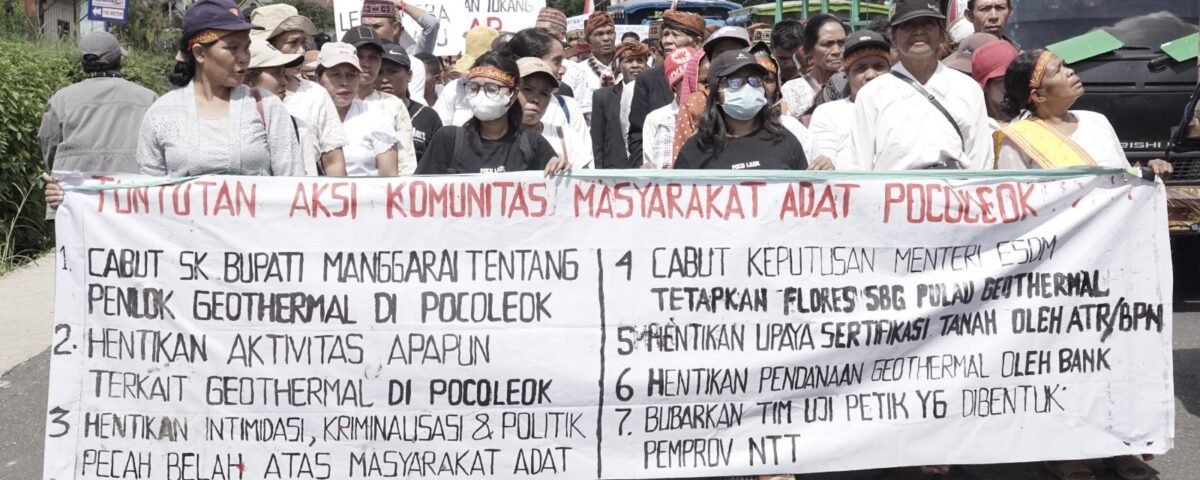 TUNTUTAN AKSI KOMUNITAS MASYARAKAT ADAT POCOLEOK
1. CABUT SK BUPATI MANGGARAI TENTANG
PENLOK GEOTHERMAL DI POCOLEOK
2. HENTIKAN AKTIVITAS APAPUN
TERKAIT GEOTHERMAL DI POCOLEOK
3 HENTIKAN INTIMIDASI, KRIMINALISASI & POLITIK
PECAH BELAH ATAS MASYARAKAT ADAT
4 CABUT KEPUTUSAN MENTERI ESDM
TETAPKAN FLORES SBG PULAU GEOTHERMAL
5 HENTIKAN UPAYA SERTIFIKASI TANAH OLEH ATR/BPN
6 HENTIKAN PENDANAAN GEOTHERMAL OLEH BANK
7. BUBARKAN TIM UJI PETIK YG DIBENTUK
PEMPROV NTT
POCO LEOK